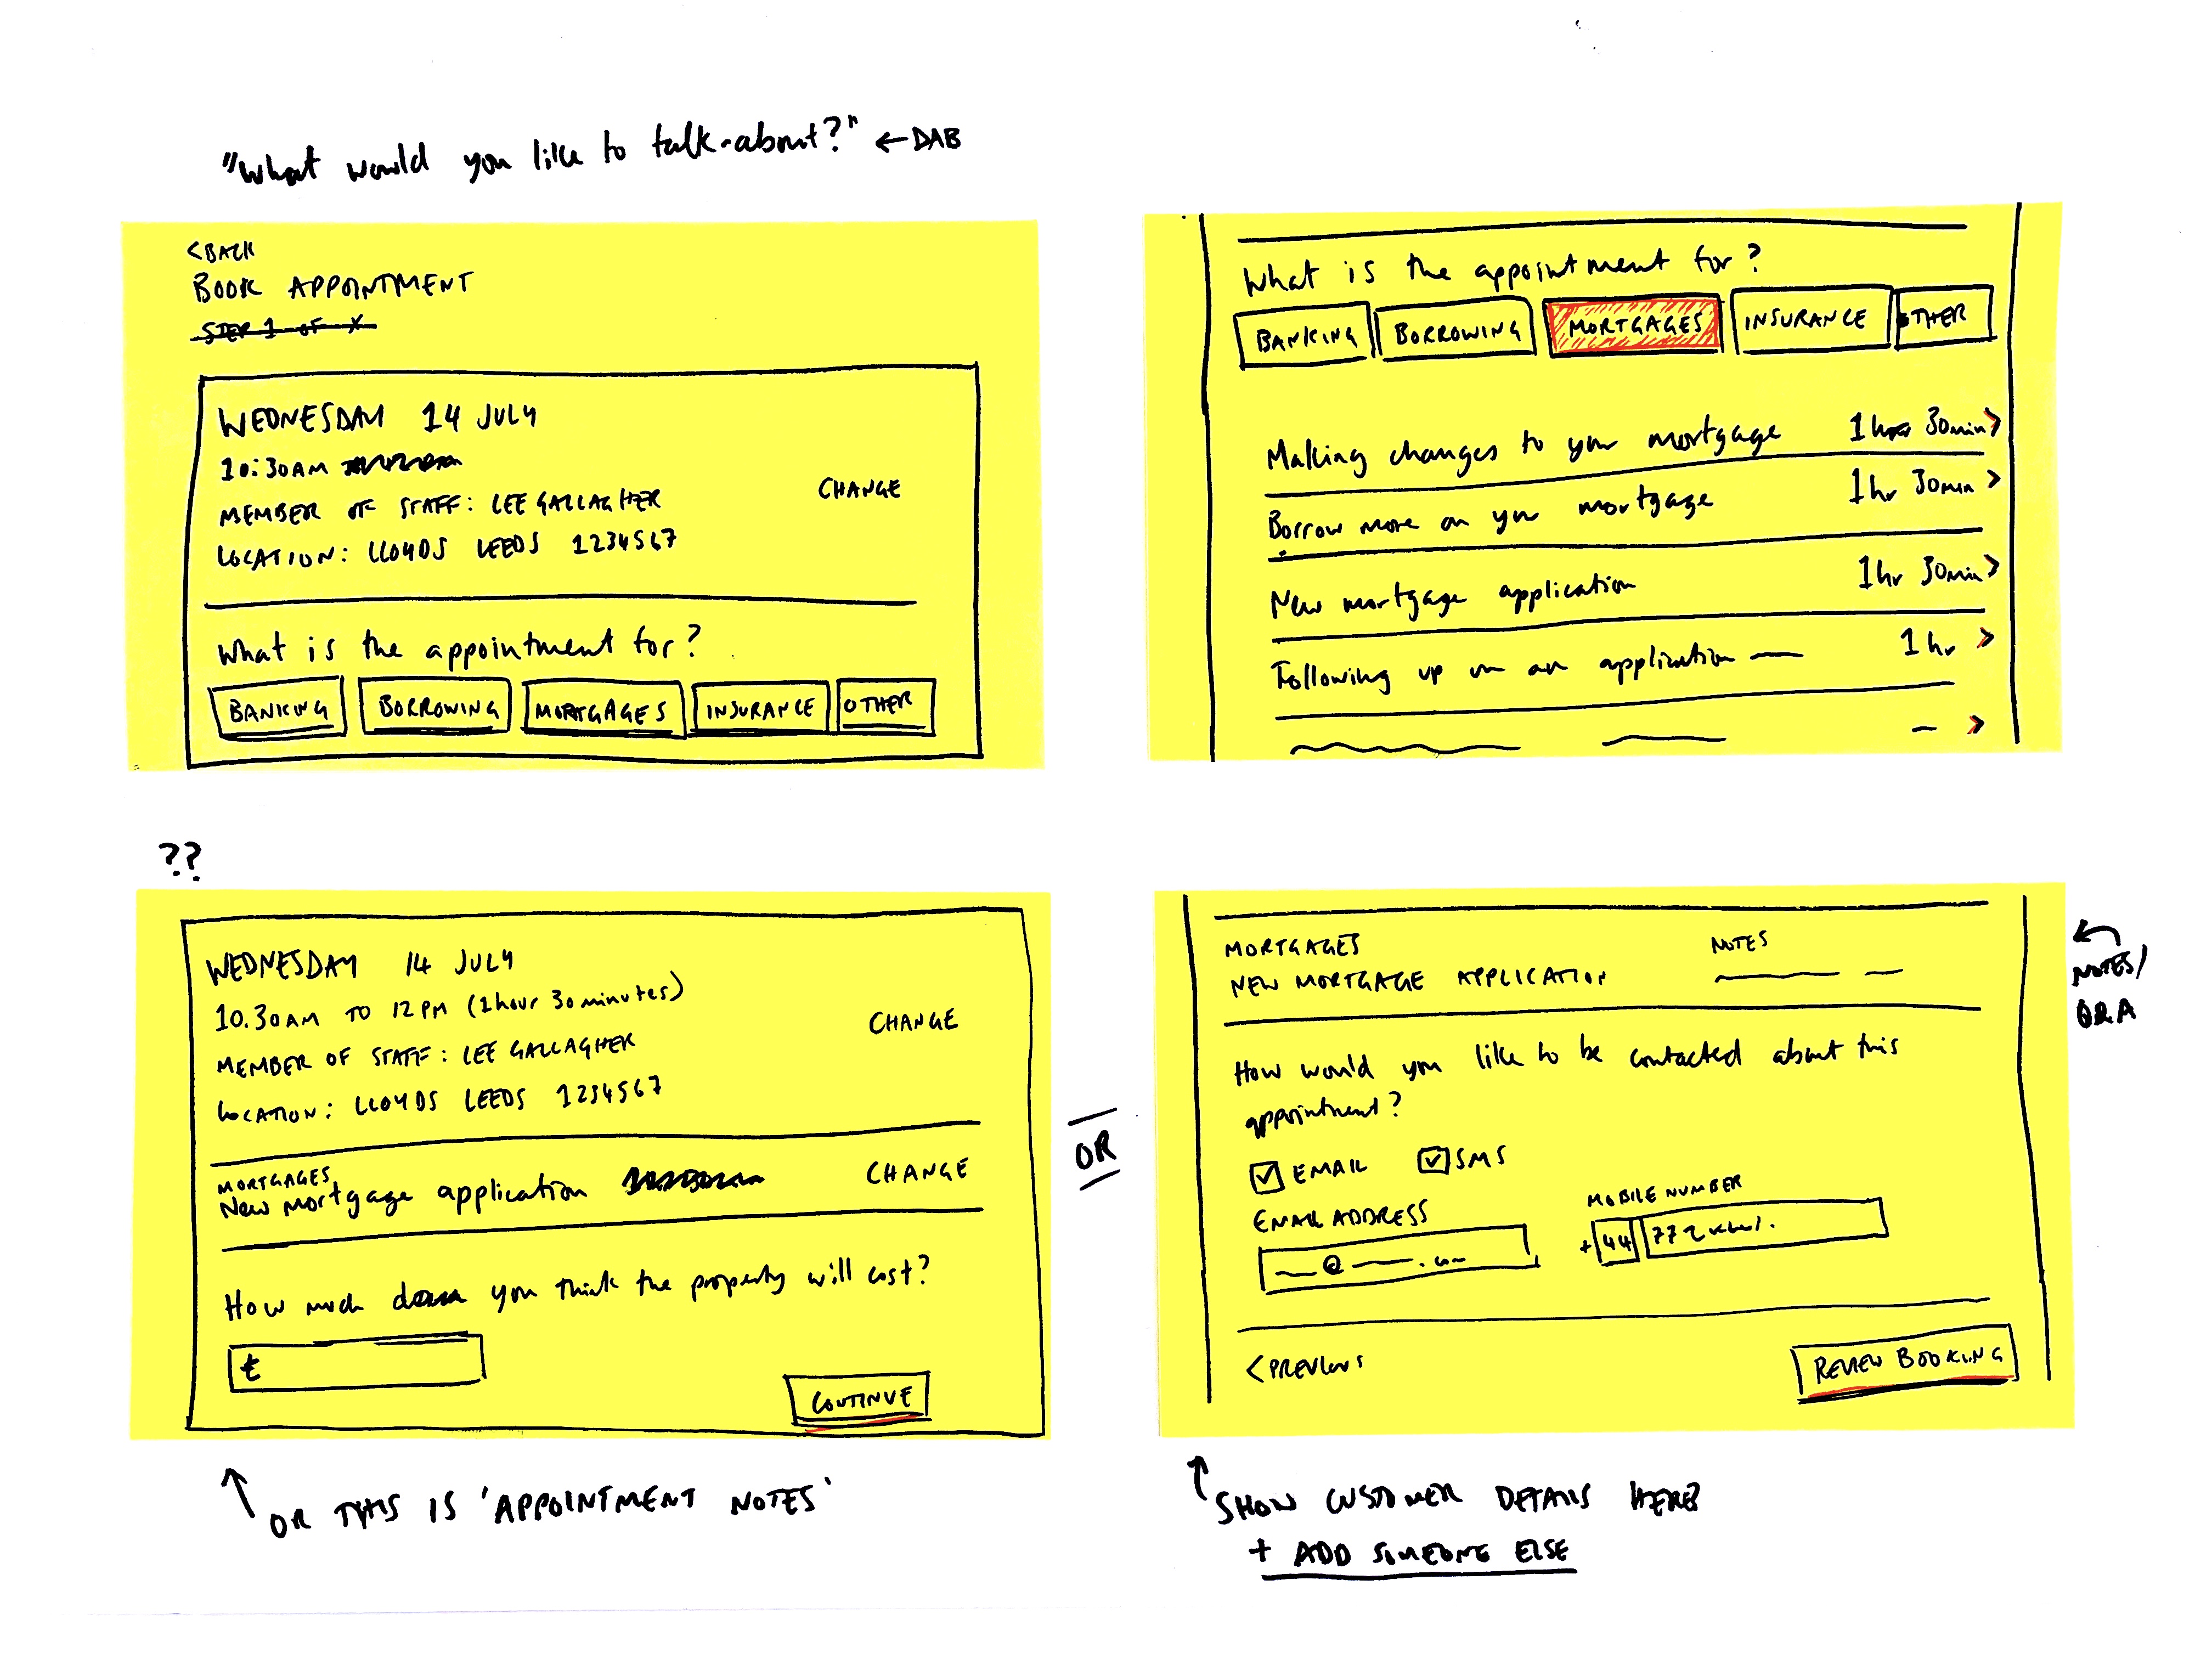 "What would you like to talk about?" ← DAB
< BACK
BOOK APPOINTMENT
STEP 1 of X
WEDNESDAY 14 JULY
10:30AM
MEMBER OF STAFF: LEE GALLAGHER
LOCATION: LLOYDS LEEDS 1234567
CHANGE
What is the appointment for?
BANKING BORROWING MORTGAGES INSURANCE OTHER
What is the appointment for?
BANKING BORROWING MORTGAGES INSURANCE OTHER
Making changes to your mortgage 1hr 30min >
Borrow more on your mortgage 1hr 30min >
New mortgage application 1hr 30min >
Following up on an application 1hr >
??
WEDNESDAY 14 JULY
10.30AM TO 12PM (1hour 30minutes)
MEMBER OF STAFF: LEE GALLAGHER
LOCATION: LLOYDS LEEDS 1234567
CHANGE
MORTGAGES
New mortgage application CHANGE
How much do you think the property will cost?
£
CONTINUE
↑ OR THIS IS 'APPOINTMENT NOTES'
OR
MORTGAGES NOTES
NEW MORTGAGE APPLICATION
How would you like to be contacted about this
appointment?
EMAIL SMS
EMAIL ADDRESS MOBILE NUMBER
@ .com +44 77
< PREVIOUS REVIEW BOOKING
← NOTES/
Q&A
↑ SHOW CUSTOMER DETAILS HERE
+ ADD SOMEONE ELSE